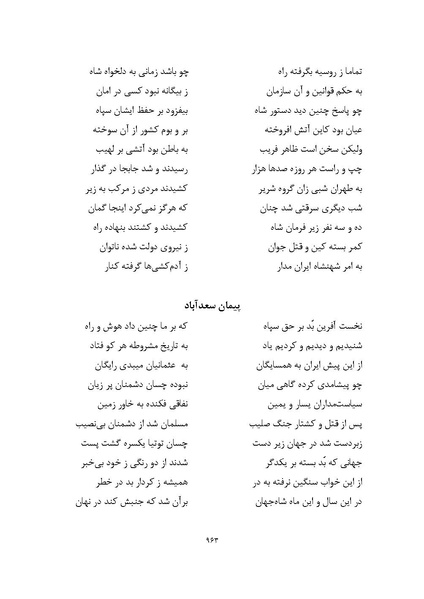 تماما ز روسیه بگرفته راه چو باشد زمانی به دلخواه شاه
به حکم قوانین و آن سازمان ز بیگانه نبود کسی در امان
چو پاسخ چنین دید دستور شاه بیفزود بر حفظ ایشان سپاه
عیان بود کاین آتش افروخته بر و بوم کشور از آن سوخته
ولیکن سخن است ظاهر فریب به باطن بود آتشی بر لهیب
چپ و راست هر روزه صدها هزار رسیدند و شد جابجا در گذار
به طهران شبی زان گروه شریر کشیدند مردی ز مرکب به زیر
شب دیگری سرقتی شد چنان که هرگز نمی‌کرد اینجا گمان
ده و سه نفر زیر فرمان شاه کشیدند و کشتند بنهاده راه
کمر بسته کین و قتل جوان ز نیروی دولت شده ناتوان
به امر شهنشاه ایران مدار ز آدم‌کشی‌ها گرفته کنار
پیمان سعدآباد
نخست آفرین بُد بر حق سپاه که بر ما چنین داد هوش و راه
شنیدیم و دیدیم و کردیم یاد به تاریخ مشروطه هر کو فتاد
از این پیش ایران به همسایگان به عثمانیان میبدی رایگان
چو پیشامدی کرده گاهی میان نبوده چسان دشمنان پر زیان
سیاست‌مداران یسار و یمین نفاقی فکنده به خاور زمین
پس از قتل و کشتار جنگ صلیب مسلمان شد از دشمنان بی‌نصیب
زبردست شد در جهان زیر دست چسان توتیا یکسره گشت پست
جهانی که بُد بسته بر یکدگر شدند از دو رنگی ز خود بی‌خبر
از این خواب سنگین نرفته به در همیشه ز کردار بد در خطر
در این سال و این ماه شاه‌جهان برآن شد که جنبش کند در نهان
۹۶۳